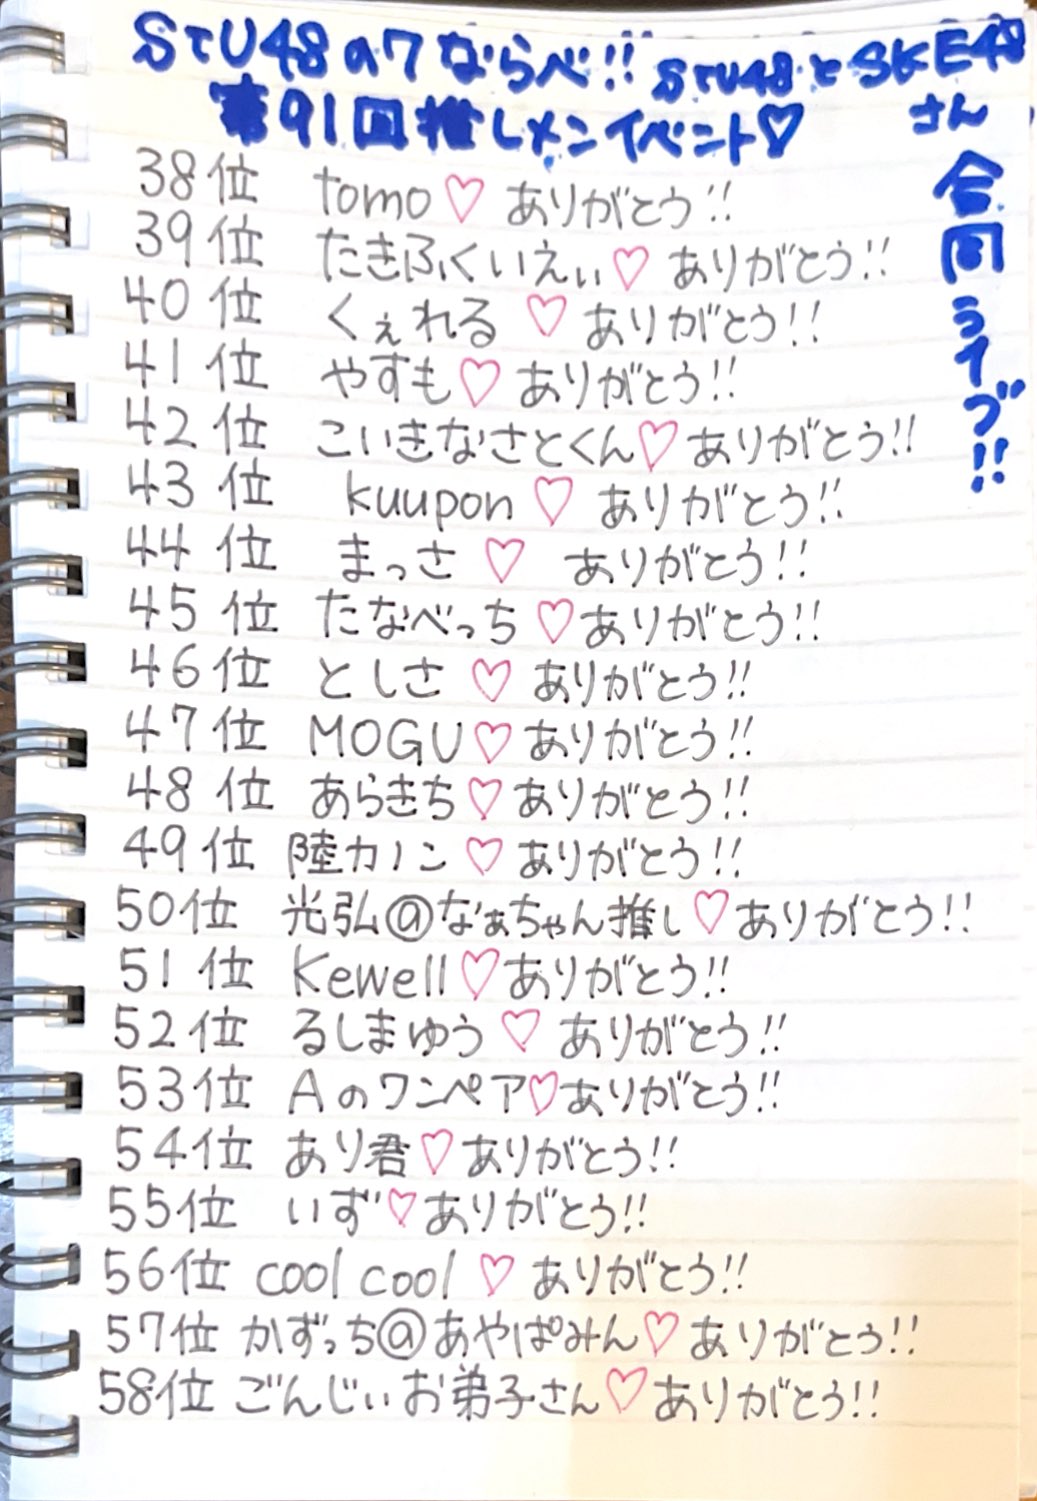 STU48の7ならべ!! STU48とSKE48さん
第91回推しメンイベント♡
合同ライブ!!
38位 tomo♡ありがとう!!
39位 たきふくいえぃ♡ありがとう!!
40位 くぇれる♡ありがとう!!
41位 やすも♡ありがとう!!
42位 こいきなさとくん♡ありがとう!!
43位 kuupon♡ありがとう!!
44位 まっさ♡ありがとう!!
45位 たなべっち♡ありがとう!!
46位 としさ♡ありがとう!!
47位 MOGU♡ありがとう!!
48位 あらきち♡ありがとう!!
49位 陸カノン♡ありがとう!!
50位 光弘@なぁちゃん推し♡ありがとう!!
51位 Kewell♡ありがとう!!
52位 るしまゆう♡ありがとう!!
53位 Aのワンペア♡ありがとう!!
54位 あり君♡ありがとう!!
55位 いず♡ありがとう!!
56位 cool cool♡ありがとう!!
57位 かずっち@あやぱみん♡ありがとう!!
58位 ごんじぃお弟子さん♡ありがとう!!